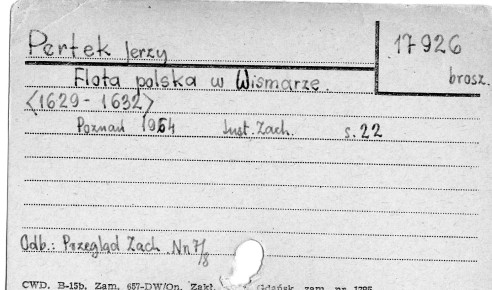 Pertek Jerzy 17926
Flota polska w Wismarze. brosz.
<1629-1632>
Poznań 1954 Inst. Zach. s. 22
Odb.: Przegląd Zach. Nr 7/8
CWD. B-15b. Zam. 657-DW/On. Zakł. Gdańsk, zam. nr 1795